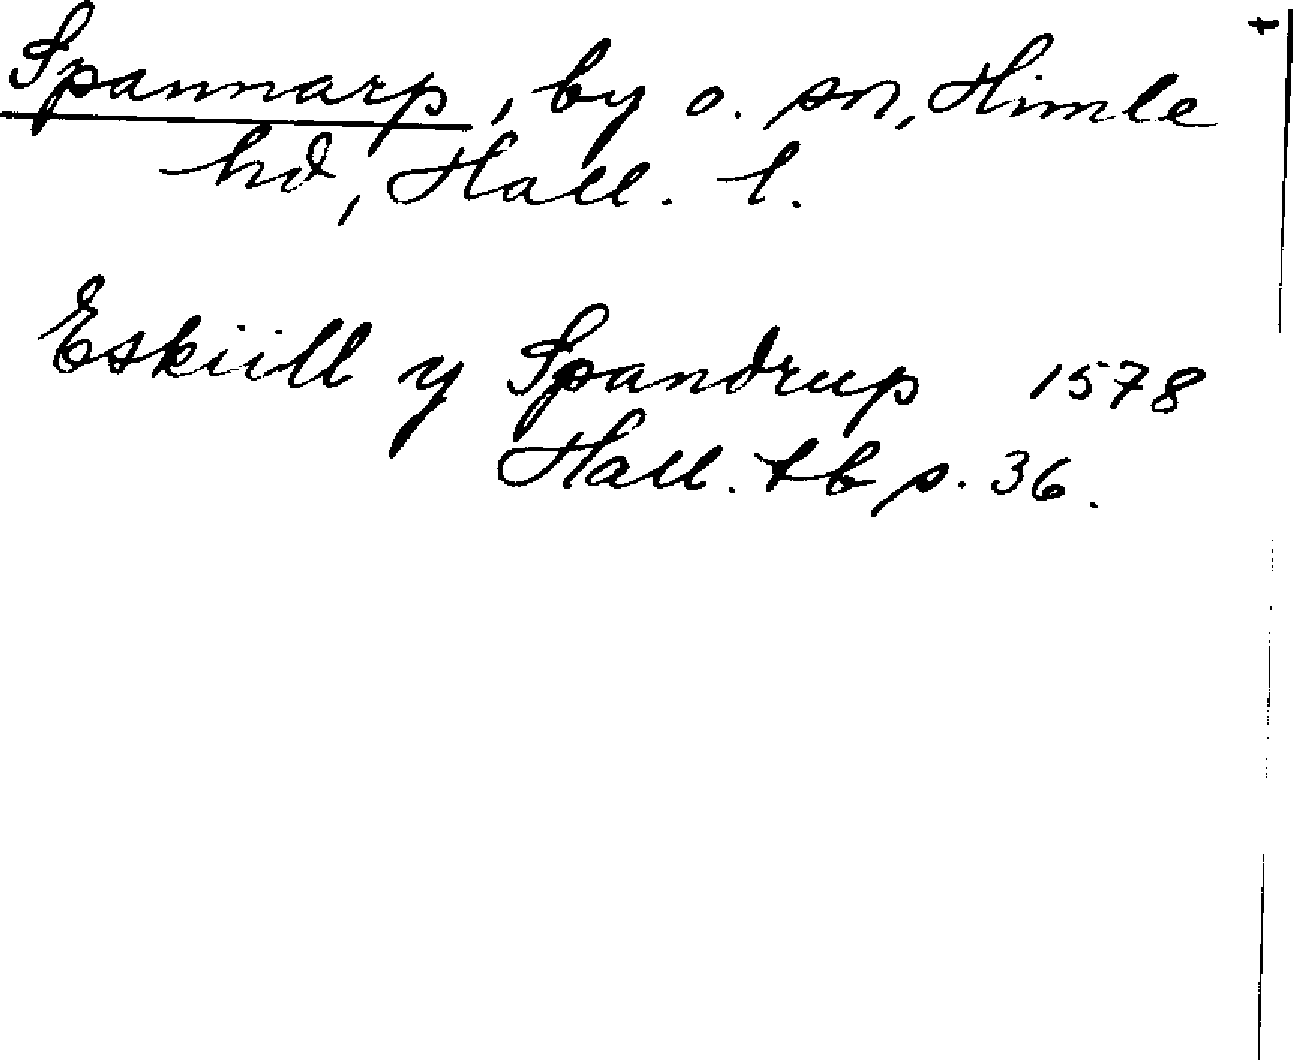 Spannarp, by o. sn, Himle
hd, Hall. l.
Eskiill y Spandrup 1578
Hall. tb s. 36.